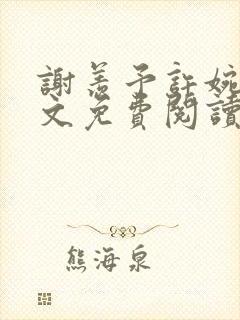 謝羡予許婉
文免費閱讀
熊海泉